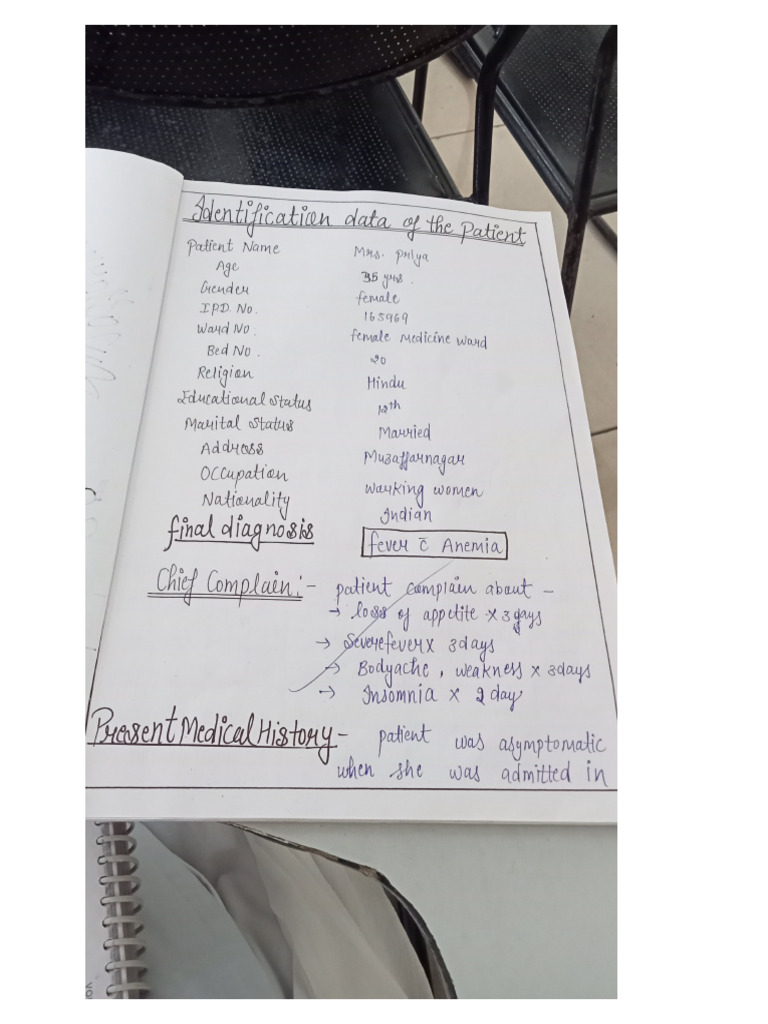 Identification data of the Patient
Patient Name Mrs. Priya
Age 35 yrs.
Gender female
IPD. No. 165969
Ward No. female Medicine Ward
Bed No. 20
Religion Hindu
Educational Status 12th
Marital Status Married
Address Muzaffarnagar
Occupation Warking women
Nationality Indian
final diagnosis fever c̄ Anemia
Chief Complain:- patient complain about -
→ loss of appetite x 3 days
→ Severe fever x 3 days
→ Bodyache, weakness x 3 days
→ Insomnia x 2 day
Present Medical History- patient was asymptomatic
when she was admitted in